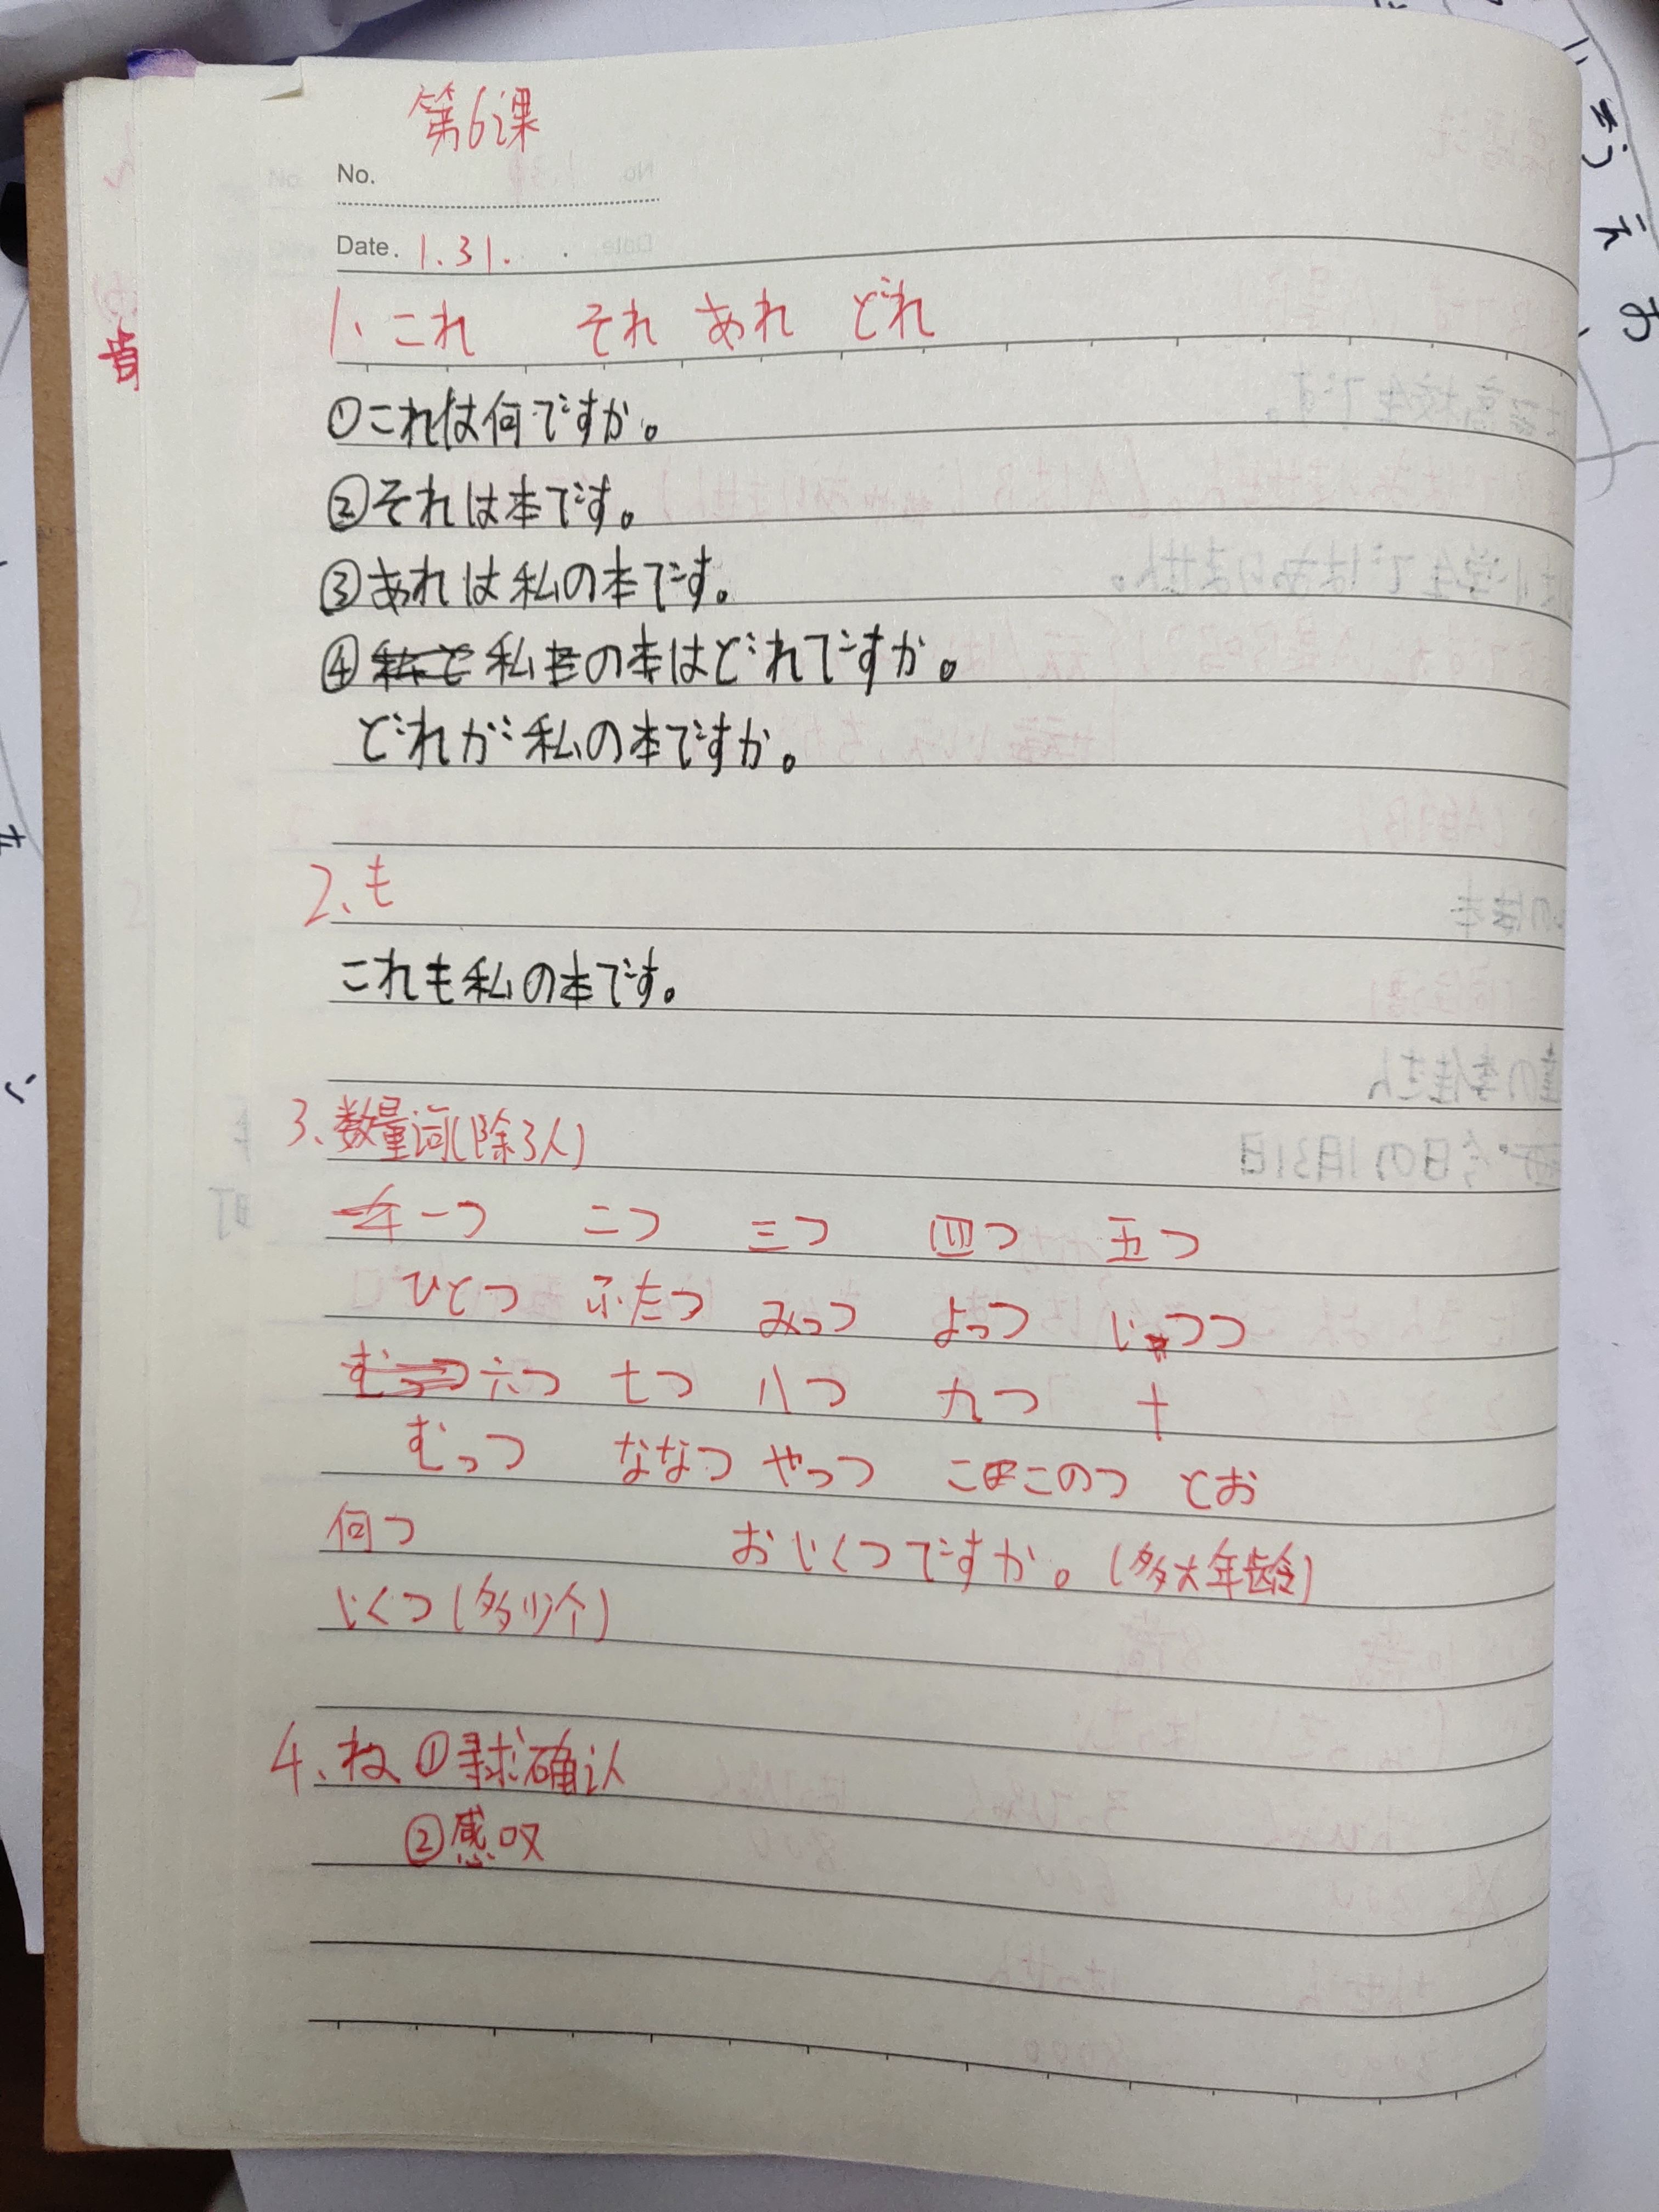 第6课
No.
Date. 1.31.
1、これ それ あれ どれ
①これは何ですか。
②それは本です。
③あれは私の本です。
④私の本はどれですか。
どれが私の本ですか。
2、も
これも私の本です。
3、数量词(除了人)
一つ 二つ 三つ 四つ 五つ
ひとつ ふたつ みっつ よっつ いつつ
六つ 七つ 八つ 九つ 十
むっつ ななつ やっつ ここのつ とお
何つ おいくつですか。(多大年龄)
いくつ(多少个)
4、ね ①寻求确认
②感叹